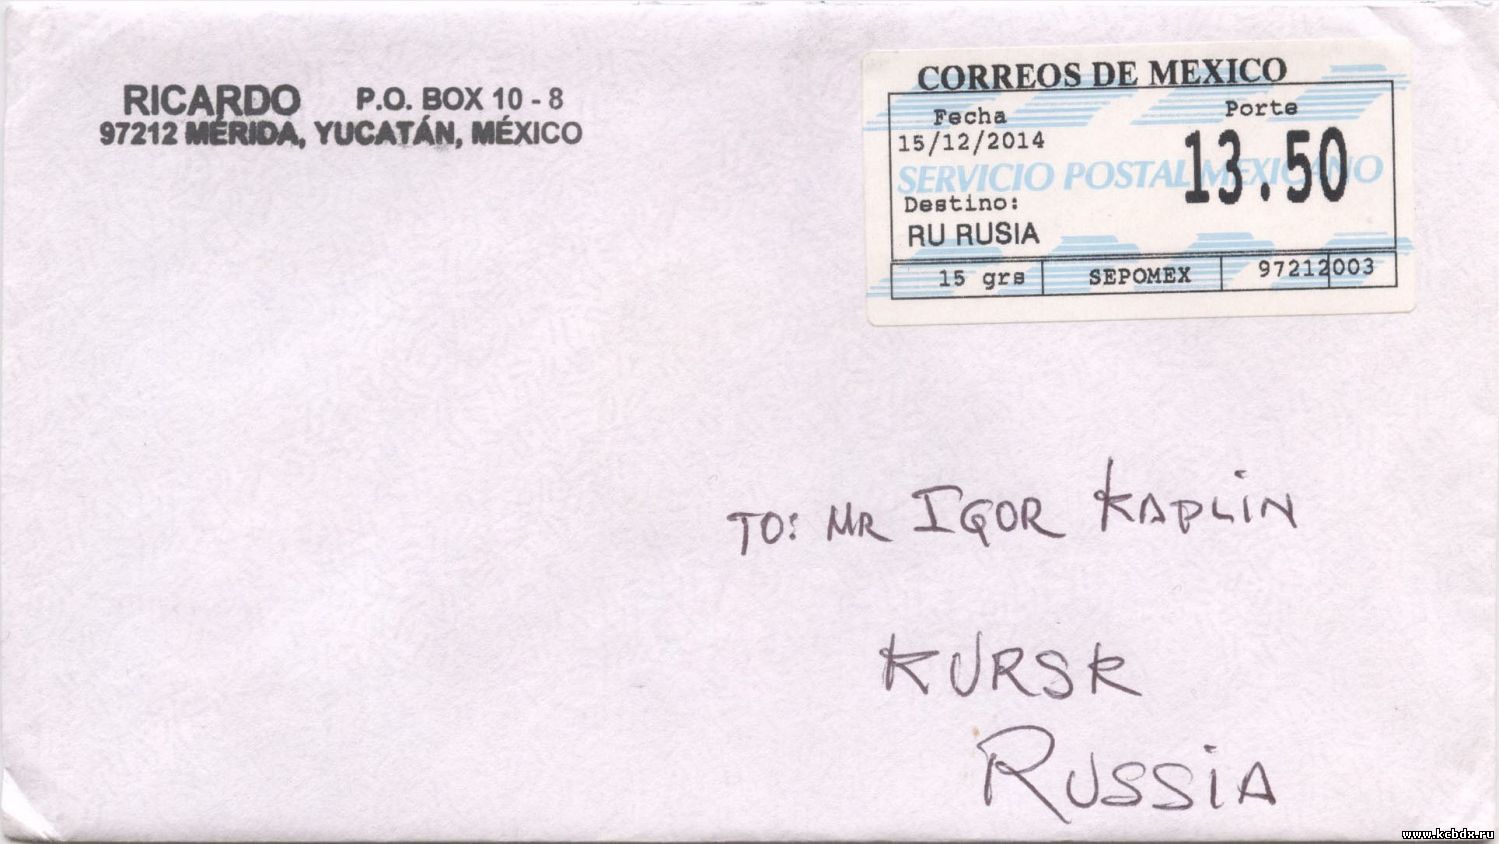 RICARDO P.O. BOX 10 - 8
97212 MÉRIDA, YUCATÁN, MÉXICO
CORREOS DE MEXICO
Fecha Porte
15/12/2014 13.50
SERVICIO POSTAL MEXICANO
Destino:
RU RUSIA
15 grs SEPOMEX 97212003
TO: MR IGOR KAPLIN
KURSK
RUSSIA
www.kcbdx.ru